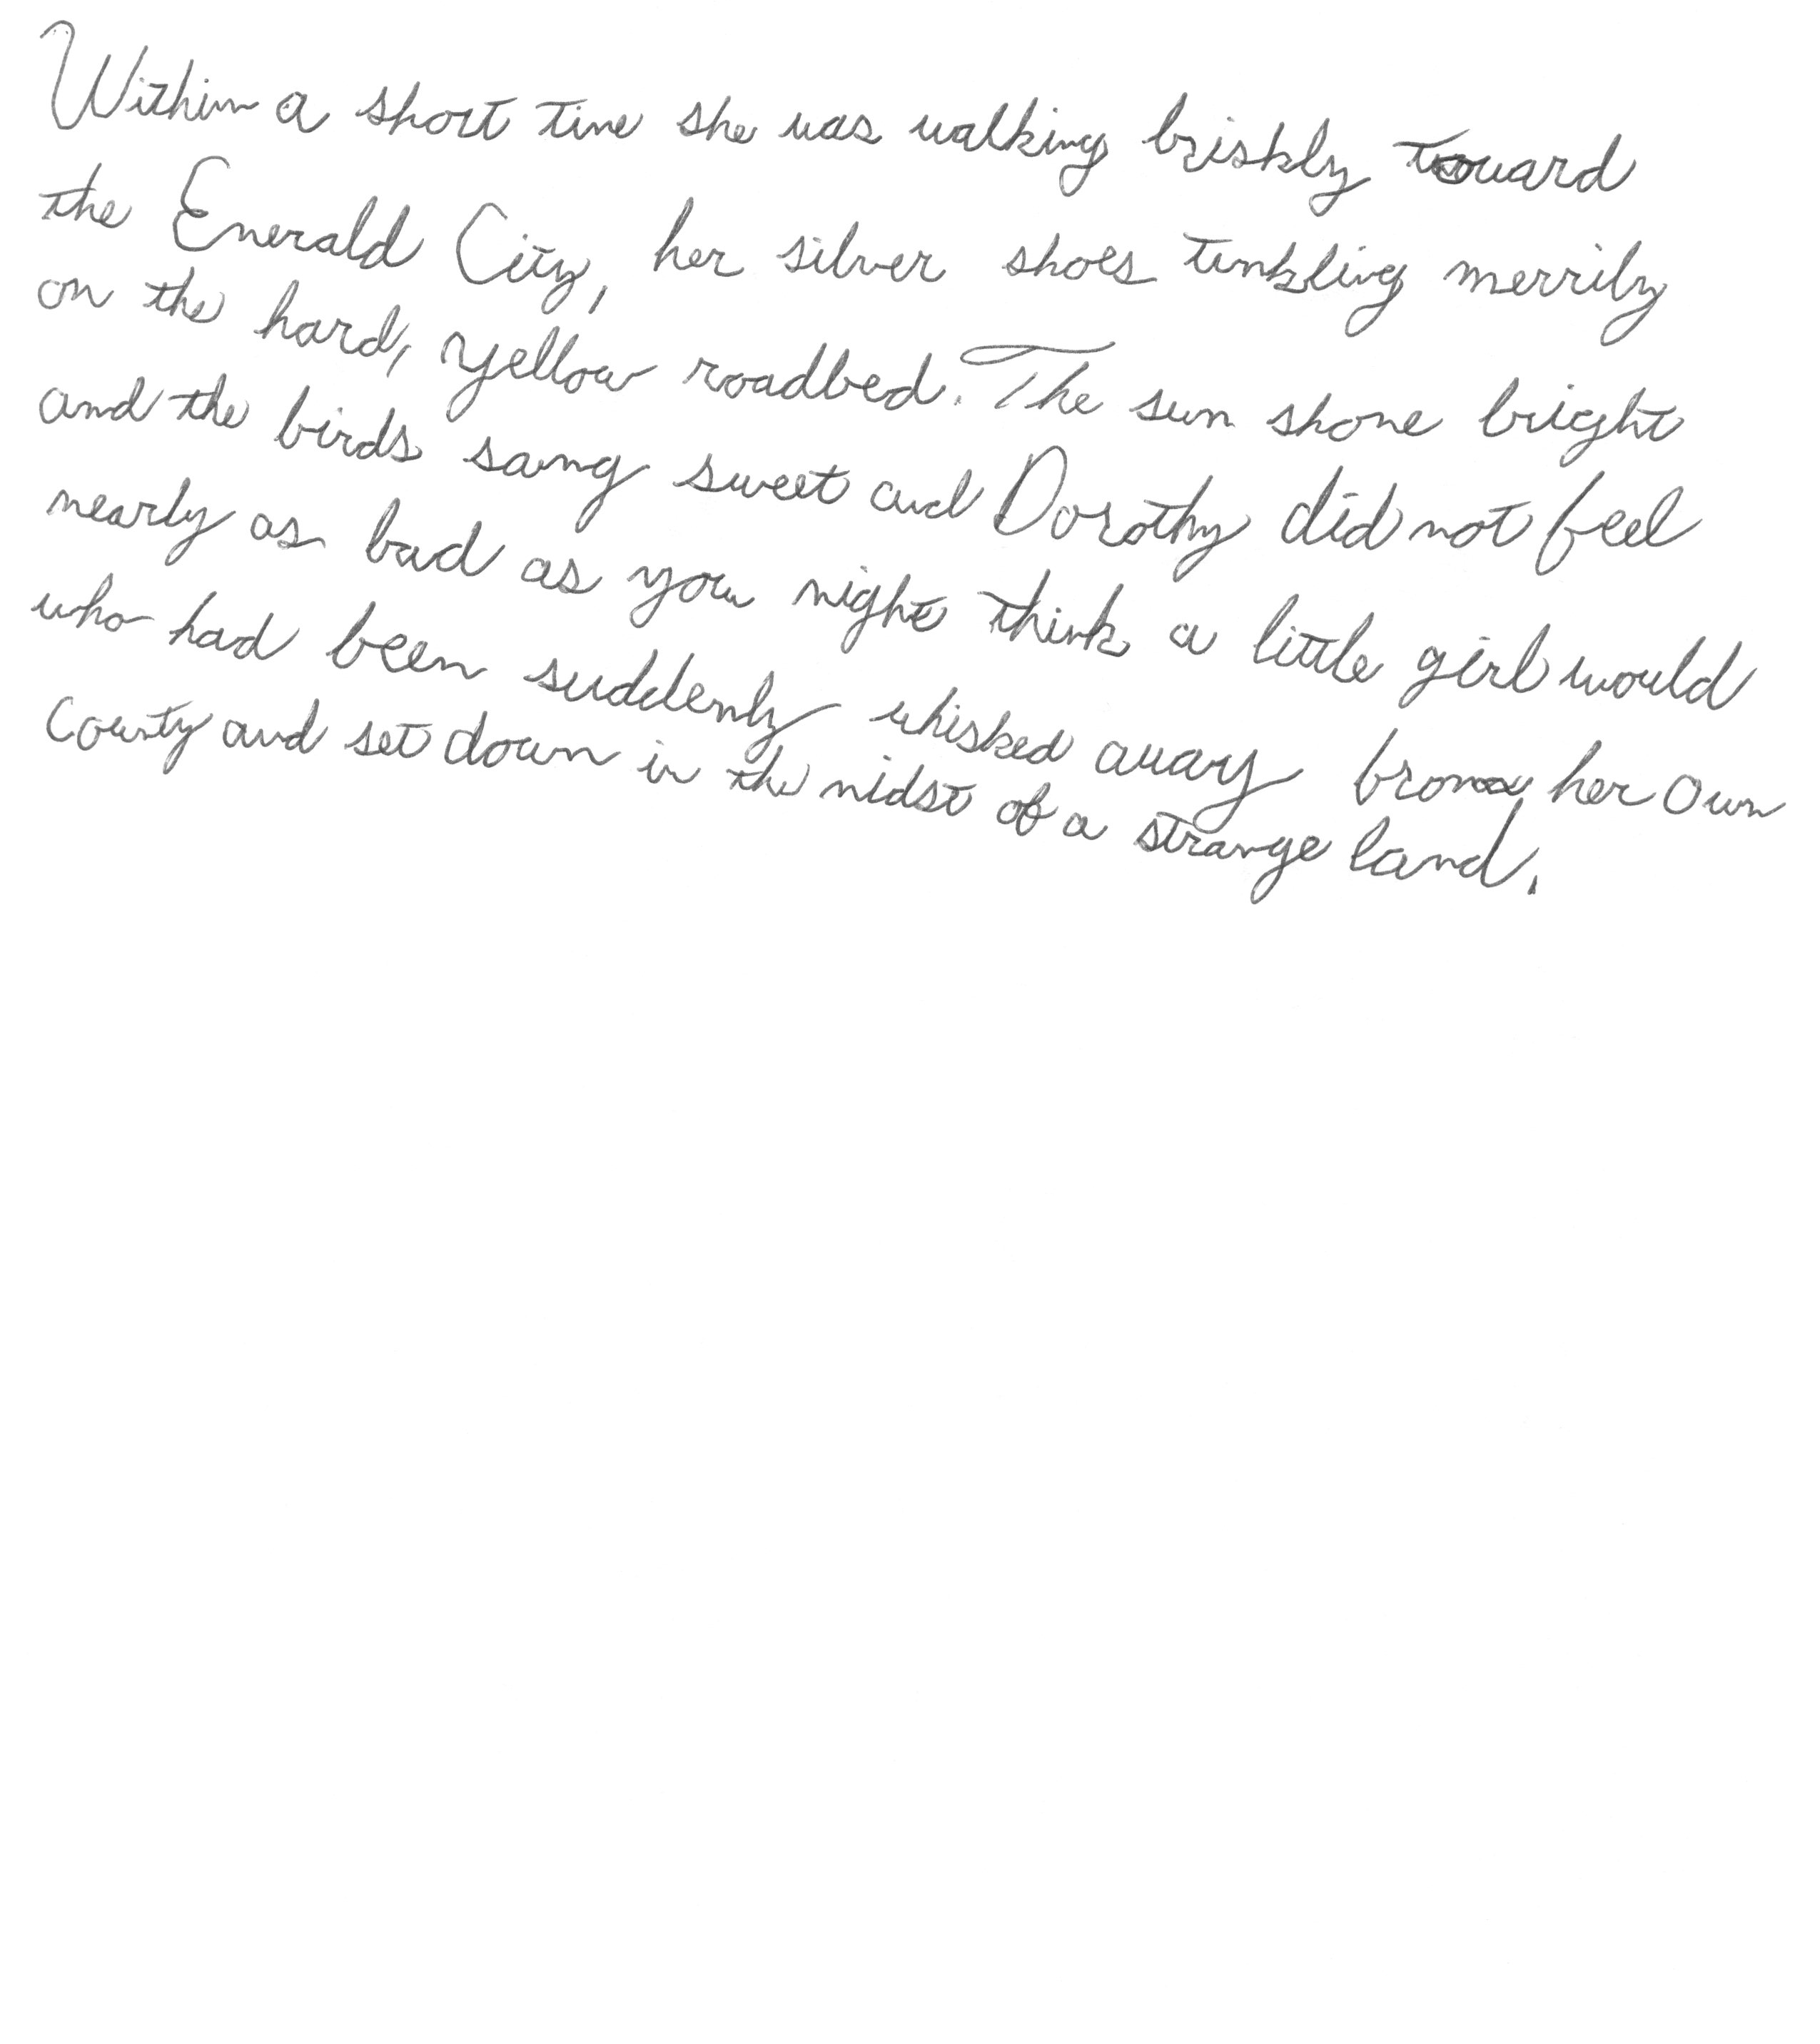 Within a short time she was walking briskly toward
the Emerald City, her silver shoes tinkling merrily
on the hard, yellow roadbed. The sun shone bright
and the birds sang sweet and Dorothy did not feel
nearly as bad as you might think a little girl would
who had been suddenly whisked away from her own
County and set down in the midst of a strange land.